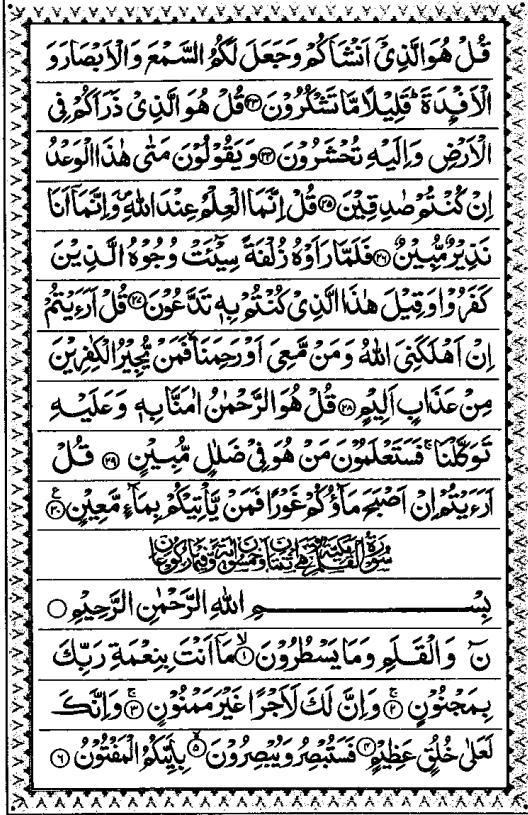 قُلْ هُوَ الَّذِیْۤ اَنْشَاَكُمْ وَجَعَلَ لَكُمُ السَّمْعَ وَالْاَبْصَارَ وَ
الْاَفْـِٕدَةَ ؕ قَلِیْلًا مَّا تَشْكُرُوْنَ ﴿۲۳﴾ قُلْ هُوَ الَّذِیْ ذَرَاَكُمْ فِی
الْاَرْضِ وَاِلَیْهِ تُحْشَرُوْنَ ﴿۲۴﴾ وَیَقُوْلُوْنَ مَتٰی هٰذَا الْوَعْدُ
اِنْ كُنْتُمْ صٰدِقِیْنَ ﴿۲۵﴾ قُلْ اِنَّمَا الْعِلْمُ عِنْدَ اللّٰهِ ۪ وَاِنَّمَاۤ اَنَا
نَذِیْرٌ مُّبِیْنٌ ﴿۲۶﴾ فَلَمَّا رَاَوْهُ زُلْفَةً سِیْٓـَٔتْ وُجُوْهُ الَّذِیْنَ
كَفَرُوْا وَقِیْلَ هٰذَا الَّذِیْ كُنْتُمْ بِهٖ تَدَّعُوْنَ ﴿۲۷﴾ قُلْ اَرَءَیْتُمْ
اِنْ اَهْلَكَنِیَ اللّٰهُ وَمَنْ مَّعِیَ اَوْ رَحِمَنَا ۙ فَمَنْ یُّجِیْرُ الْكٰفِرِیْنَ
مِنْ عَذَابٍ اَلِیْمٍ ﴿۲۸﴾ قُلْ هُوَ الرَّحْمٰنُ اٰمَنَّا بِهٖ وَعَلَیْهِ
تَوَكَّلْنَا ۚ فَسَتَعْلَمُوْنَ مَنْ هُوَ فِیْ ضَلٰلٍ مُّبِیْنٍ ﴿۲۹﴾ قُلْ
اَرَءَیْتُمْ اِنْ اَصْبَحَ مَآؤُكُمْ غَوْرًا فَمَنْ یَّاْتِیْكُمْ بِمَآءٍ مَّعِیْنٍ ﴿۳۰﴾ ع
سُوْرَةُ الْقَلَمِ مَكِّیَّةٌ
بِسْمِ اللّٰهِ الرَّحْمٰنِ الرَّحِیْمِ ○
نٓ وَالْقَلَمِ وَمَا یَسْطُرُوْنَ ۙ﴿۱﴾ مَاۤ اَنْتَ بِنِعْمَةِ رَبِّكَ
بِمَجْنُوْنٍ ۚ﴿۲﴾ وَاِنَّ لَكَ لَاَجْرًا غَیْرَ مَمْنُوْنٍ ۚ﴿۳﴾ وَاِنَّكَ
لَعَلٰی خُلُقٍ عَظِیْمٍ ﴿۴﴾ فَسَتُبْصِرُ وَیُبْصِرُوْنَ ۙ﴿۵﴾ بِاَىیِّكُمُ الْمَفْتُوْنُ ﴿۶﴾